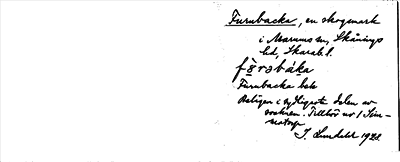 Furubacka, en skogsmark
i Marums sn, Skånings
hd, Skarab.l.
Furubacka
Belägen i sydligaste delen av
socknen. Tillhör nr 1 Sim-
J. Lundahl 1922